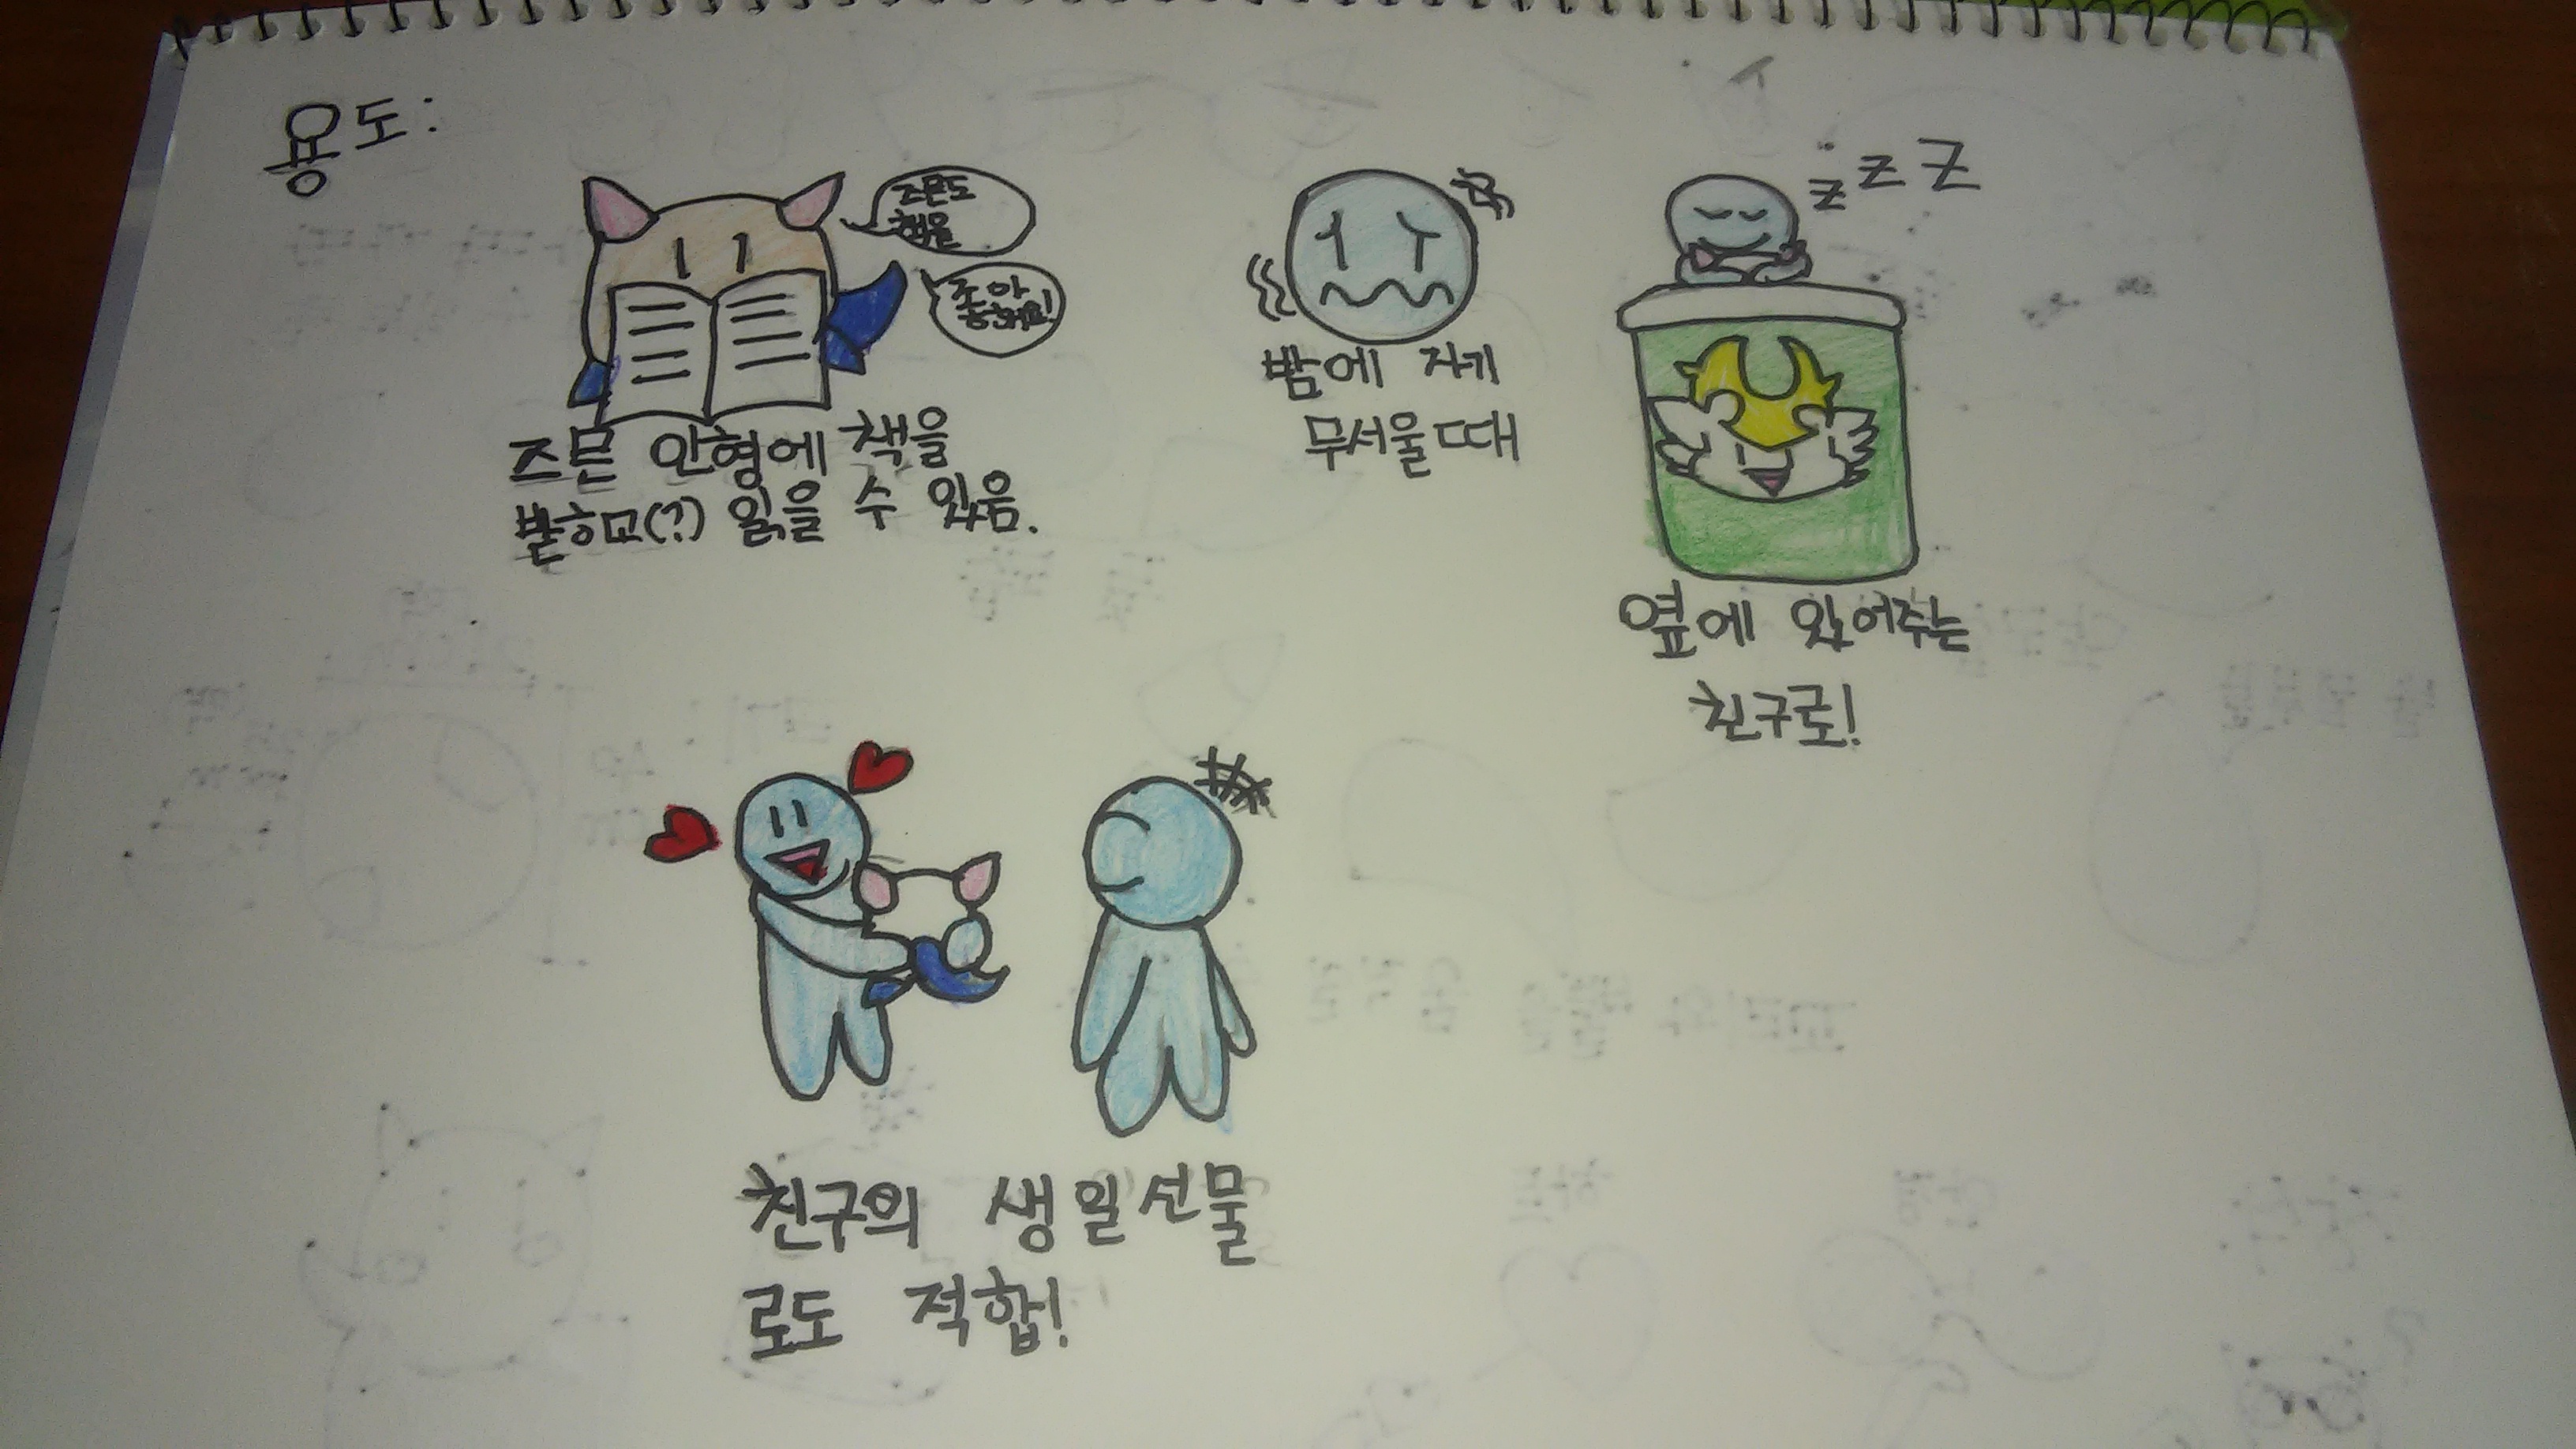 용도:
즈믄도
책을
좋아
해요!
즈믄 인형에 책을
붙히고(?) 읽을 수 있음.
밤에 자기
무서울때
z z Z
옆에 있어주는
친구로!
친구의 생일선물
로도 적합!